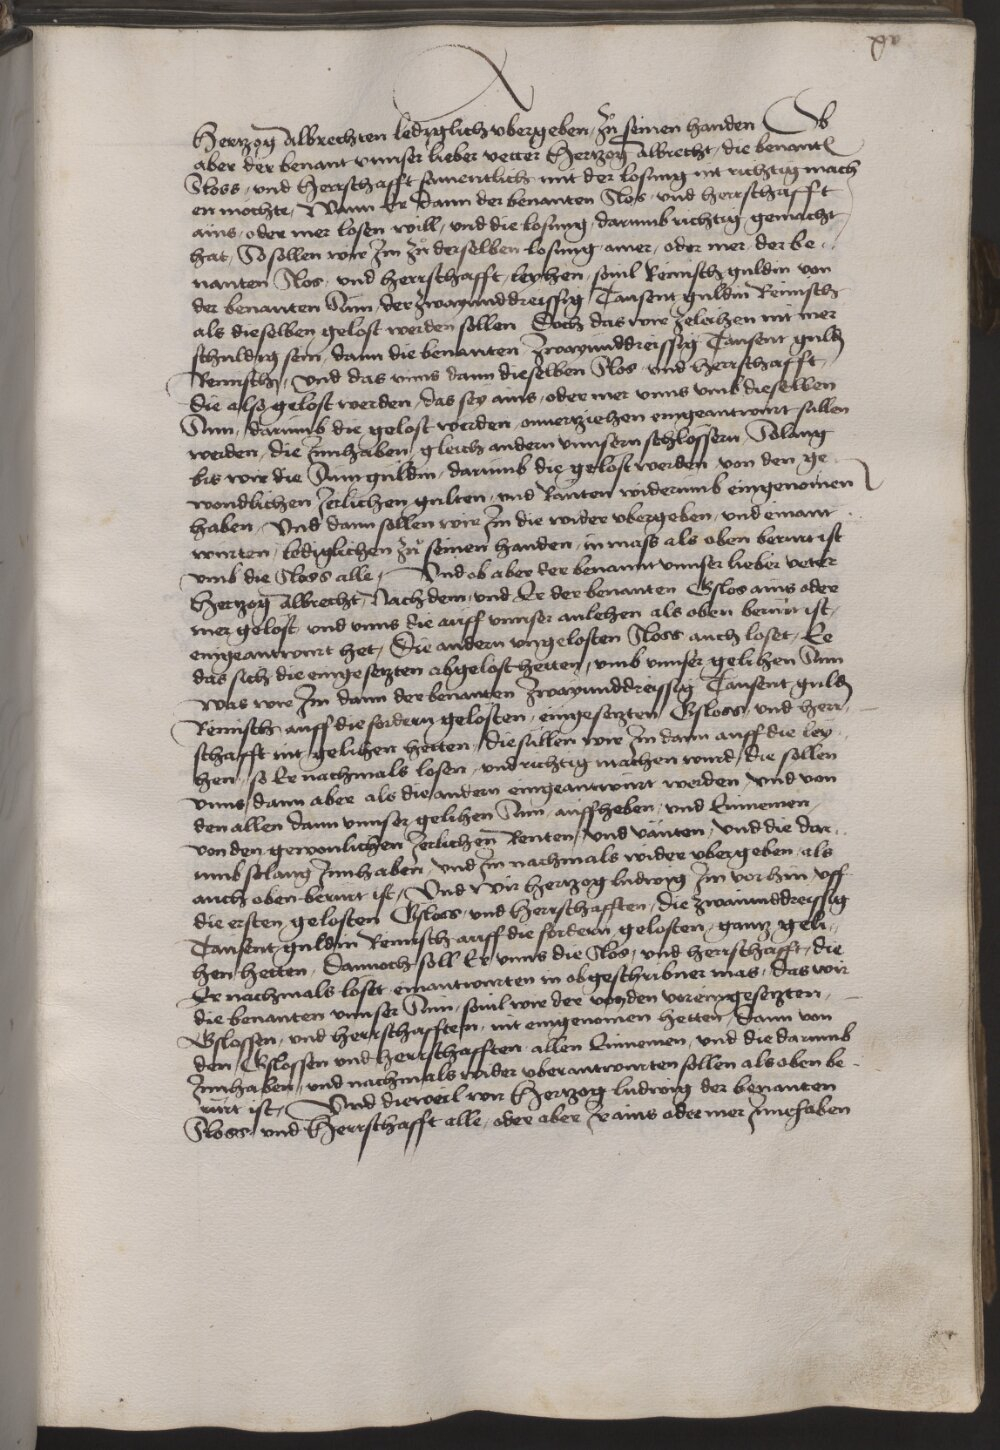 Hertzog Albrechten lediglich vbergeben, zu seinen handen Ob
aber der benant vnnser lieber vetter Hertzog Albrecht, die benant
Sloss, vnd Herrschafft samentlich mit der losung nit richtig mach
en möchte, Wann Er dann der benanten Slos, vnd Herrschafft
ains, oder mer losen will, vnd die losung, darumb richtig gemacht
hat, So sollen wir Im zu derselben losung ainer, oder mer, der be
nanten Slos, vnd Herrschafft, leyhen, souil Reinisch guldin von
der benanten Sum, der Zwayunddreissig Tausent guldin Reinisch
als dieselben gelost werden sollen Doch das wir Zeleihen nit mer
schuldig sein, dann die benanten Zwayunddreissig Tausent guld
Reinisch, vnd das vnns dann dieselben Slos vnd Herrschafft,
die also gelost werden, das sey ains, oder mer vnns vmb dieselben
Sum, darumb die gelost werden, onuerziehen eingeantwurt sullen
werden, die Innhaben, gleich andern vnnsern schlossern Solang
bis wir die Sum guldin, darumb die gelost werden, von den ge
wondlichen Jerlichen gulten, vnd Rännten widerumb eingenomen
haben, Vnd dann sollen wir Im die wider vbergeben, vnd einant
wurten, lediglichen zu seinen handen, in mass als oben berurt ist
vmb die Sloss alle, Vnd ob aber der benannt vnnser lieber veter
Hertzog Albrecht, Nachdem, vnd Er der benanten Gslos ains oder
mer gelost, vnd vnns die auff vnnser anlehen als oben berurt ist,
eingeantwurt het, Die andern vngelosten Sloss auch loset, Ee
das sich die eingesetzten abgelost hetten, vmb vnnser gelihen Sum
was wir Im dann der benanten Zwayunddreissig Tausent guld
Reinisch auff die fordern gelosten, eingesetzten Gsloss, vnd Herr
schafft nit gelihen hetten, die sullen wir Im dann auff die ley
hen, so Er nachmals losen, vnd richtig machen wurd, die sollen
vnns dann aber als die andern eingeantwurt werden, vnd von
den allen dann vnnser gelihen Sum, auffheben, vnd Einnemen,
von den gewonlichen Jerlichen Renten, vnd vänten, vnd die dar
umb solang Innhaben, vnd Im nachmals wider vbergeben, als
auch oben berurt ist, Vnd Wir Hertzog ludwig Im vorhin, vff
die ersten gelosten Gsloss, vnd Herrschafften, die Zwaiunddreissig
Tausent guldin Reinisch auff die fordern gelosten, gantz geli
hen hetten, Dannoch soll Er vnns die Slos, vnd Herrschafft, die
Er nachmals loset einantwurten in obgeschribner mas, das wir
die benanten vnnser Sum, souil wir der von den voreingesetzten,
Gslossen, vnd Herrschafften, nit eingenomen hetten, Dann von
den Gslossen vnd Herrschafften allen Einnemen, vnd die darumb
Innhaben, vnd nachmals wider vberantwurten sollen als oben be
rürt ist, Vnd dieweil wir Hertzog ludwig der benanten
Sloss, vnd Herrschafft alle, oder aber Ir ains oder mer Innehaben